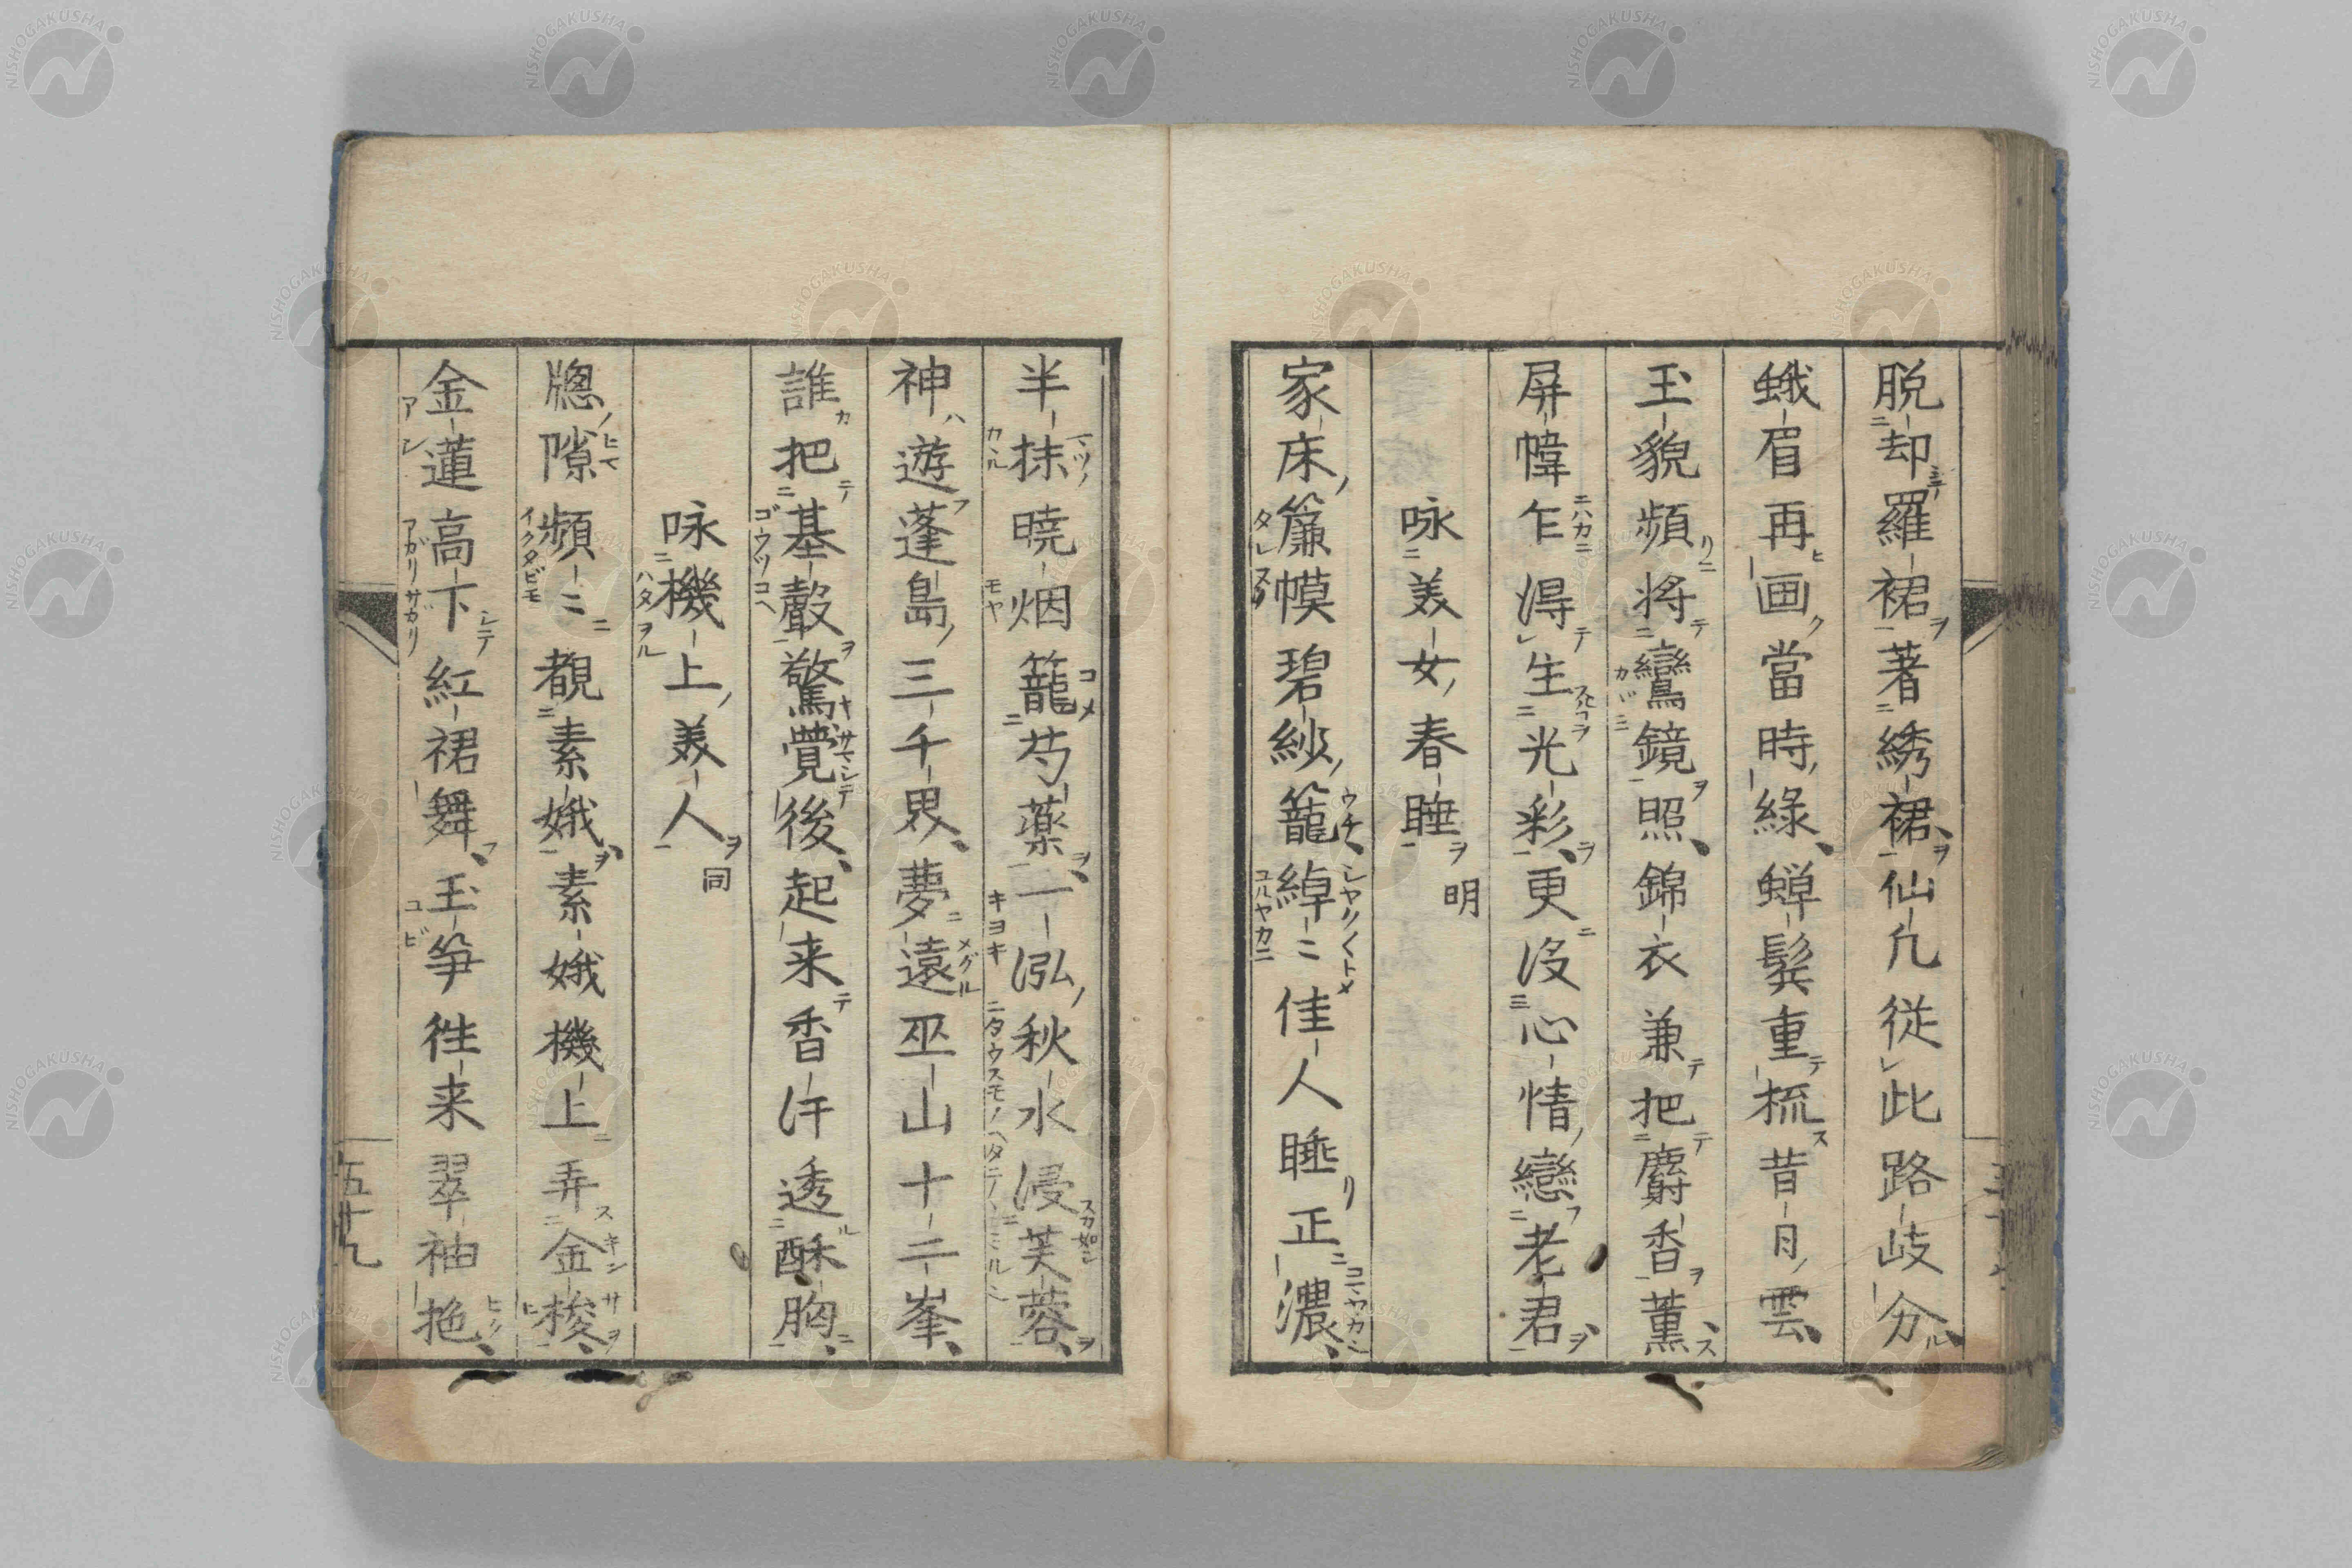 脱却羅裙著綉裙仙凢従此路岐分
蛾眉再画當時綠蝉鬂重梳昔日雲
玉貌頻将鸞鏡照錦衣兼把麝香薫
屏幃乍淂生光彩更没心情戀老君
咏美女春睡 明
家床簾幙碧紗籠綽〻佳人睡正濃
半抹暁烟籠芍薬一泓秋水浸芙蓉
神遊蓬島三千界夢遠巫山十二峯
誰把基鼔驚覺後起来香汗透酥胸
咏機上美人 同
牎隙頻〻覩素娥素娥機上弄金梭
金蓮高下紅裙舞玉笋徃来翠袖拖
五十九
NISHOGAKUSHA